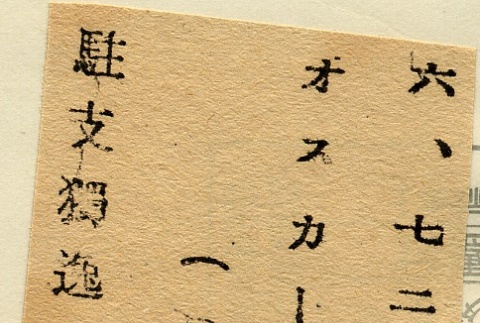 六、七三
オスカー
（
駐支獨逸